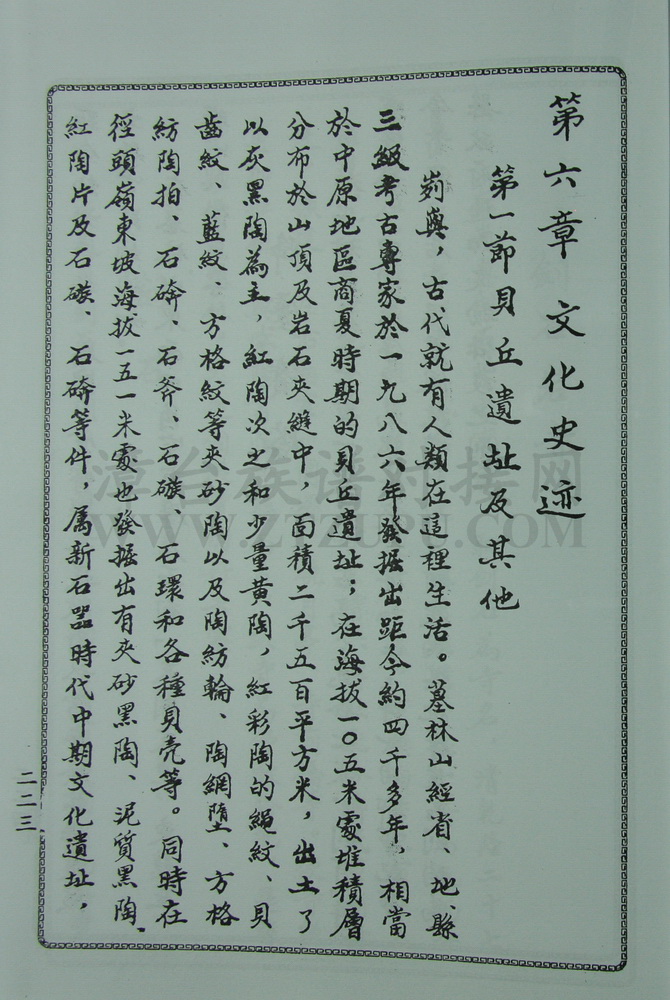 第六章 文化史迹
第一節貝丘遺址及其他
峛嶼，古代就有人類在這裡生活。墓林山經省、地、縣
三級考古專家於一九八六年發掘出距今約四千多年，相當
於中原地區商夏時期的貝丘遺址；在海拔一〇五米處堆積層
分布於山頂及岩石夾縫中，面積二千五百平方米，出土了
以灰黑陶為主，紅陶次之和少量黃陶，紅彩陶的繩紋、貝
齒紋、藍紋、方格紋等夾砂陶以及陶紡輪、陶網墜、方格
紡陶拍、石錛、石斧、石鏃、石環和各種貝壳等。同時在
徑頭嶺東坡海拔一五一米處也發掘出有夾砂黑陶、泥質黑陶、
紅陶片及石鏃、石錛等件，属新石器時代中期文化遺址，
二二三
WWW.ZTZUPU.COM